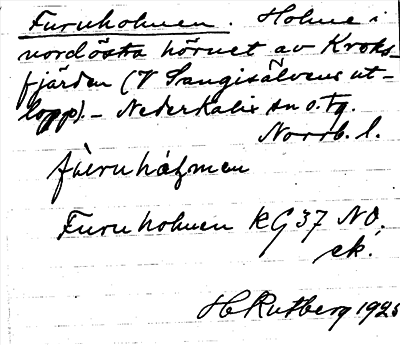 Furuholmen. Holme i
nordösta hörnet av Kroks-
fjärden (V Sangisälvens ut-
lopp). - Nederkalix sn o. tg.
Norrb. l.
fùruhɷlmen
Furuholmen KG 37 NO.
ek.
H Rutberg 1925